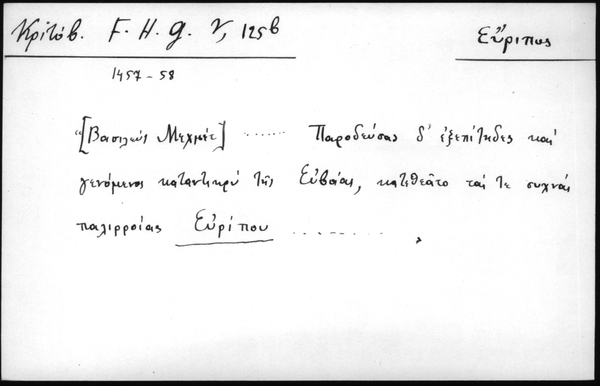 Κριτόβ. F. H. G. V, 125b
Εὔριπος
1457-58
"[Βασιλεὺς Μεχμὲτ] ...... Παροδεύσας δ' ἐξεπίτηδες καὶ
γενόμενος καταντικρὺ τῆς Εὐβοίας, κατεθεᾶτο τάς τε συχνάς
παλιρροίας Εὐρίπου .........,